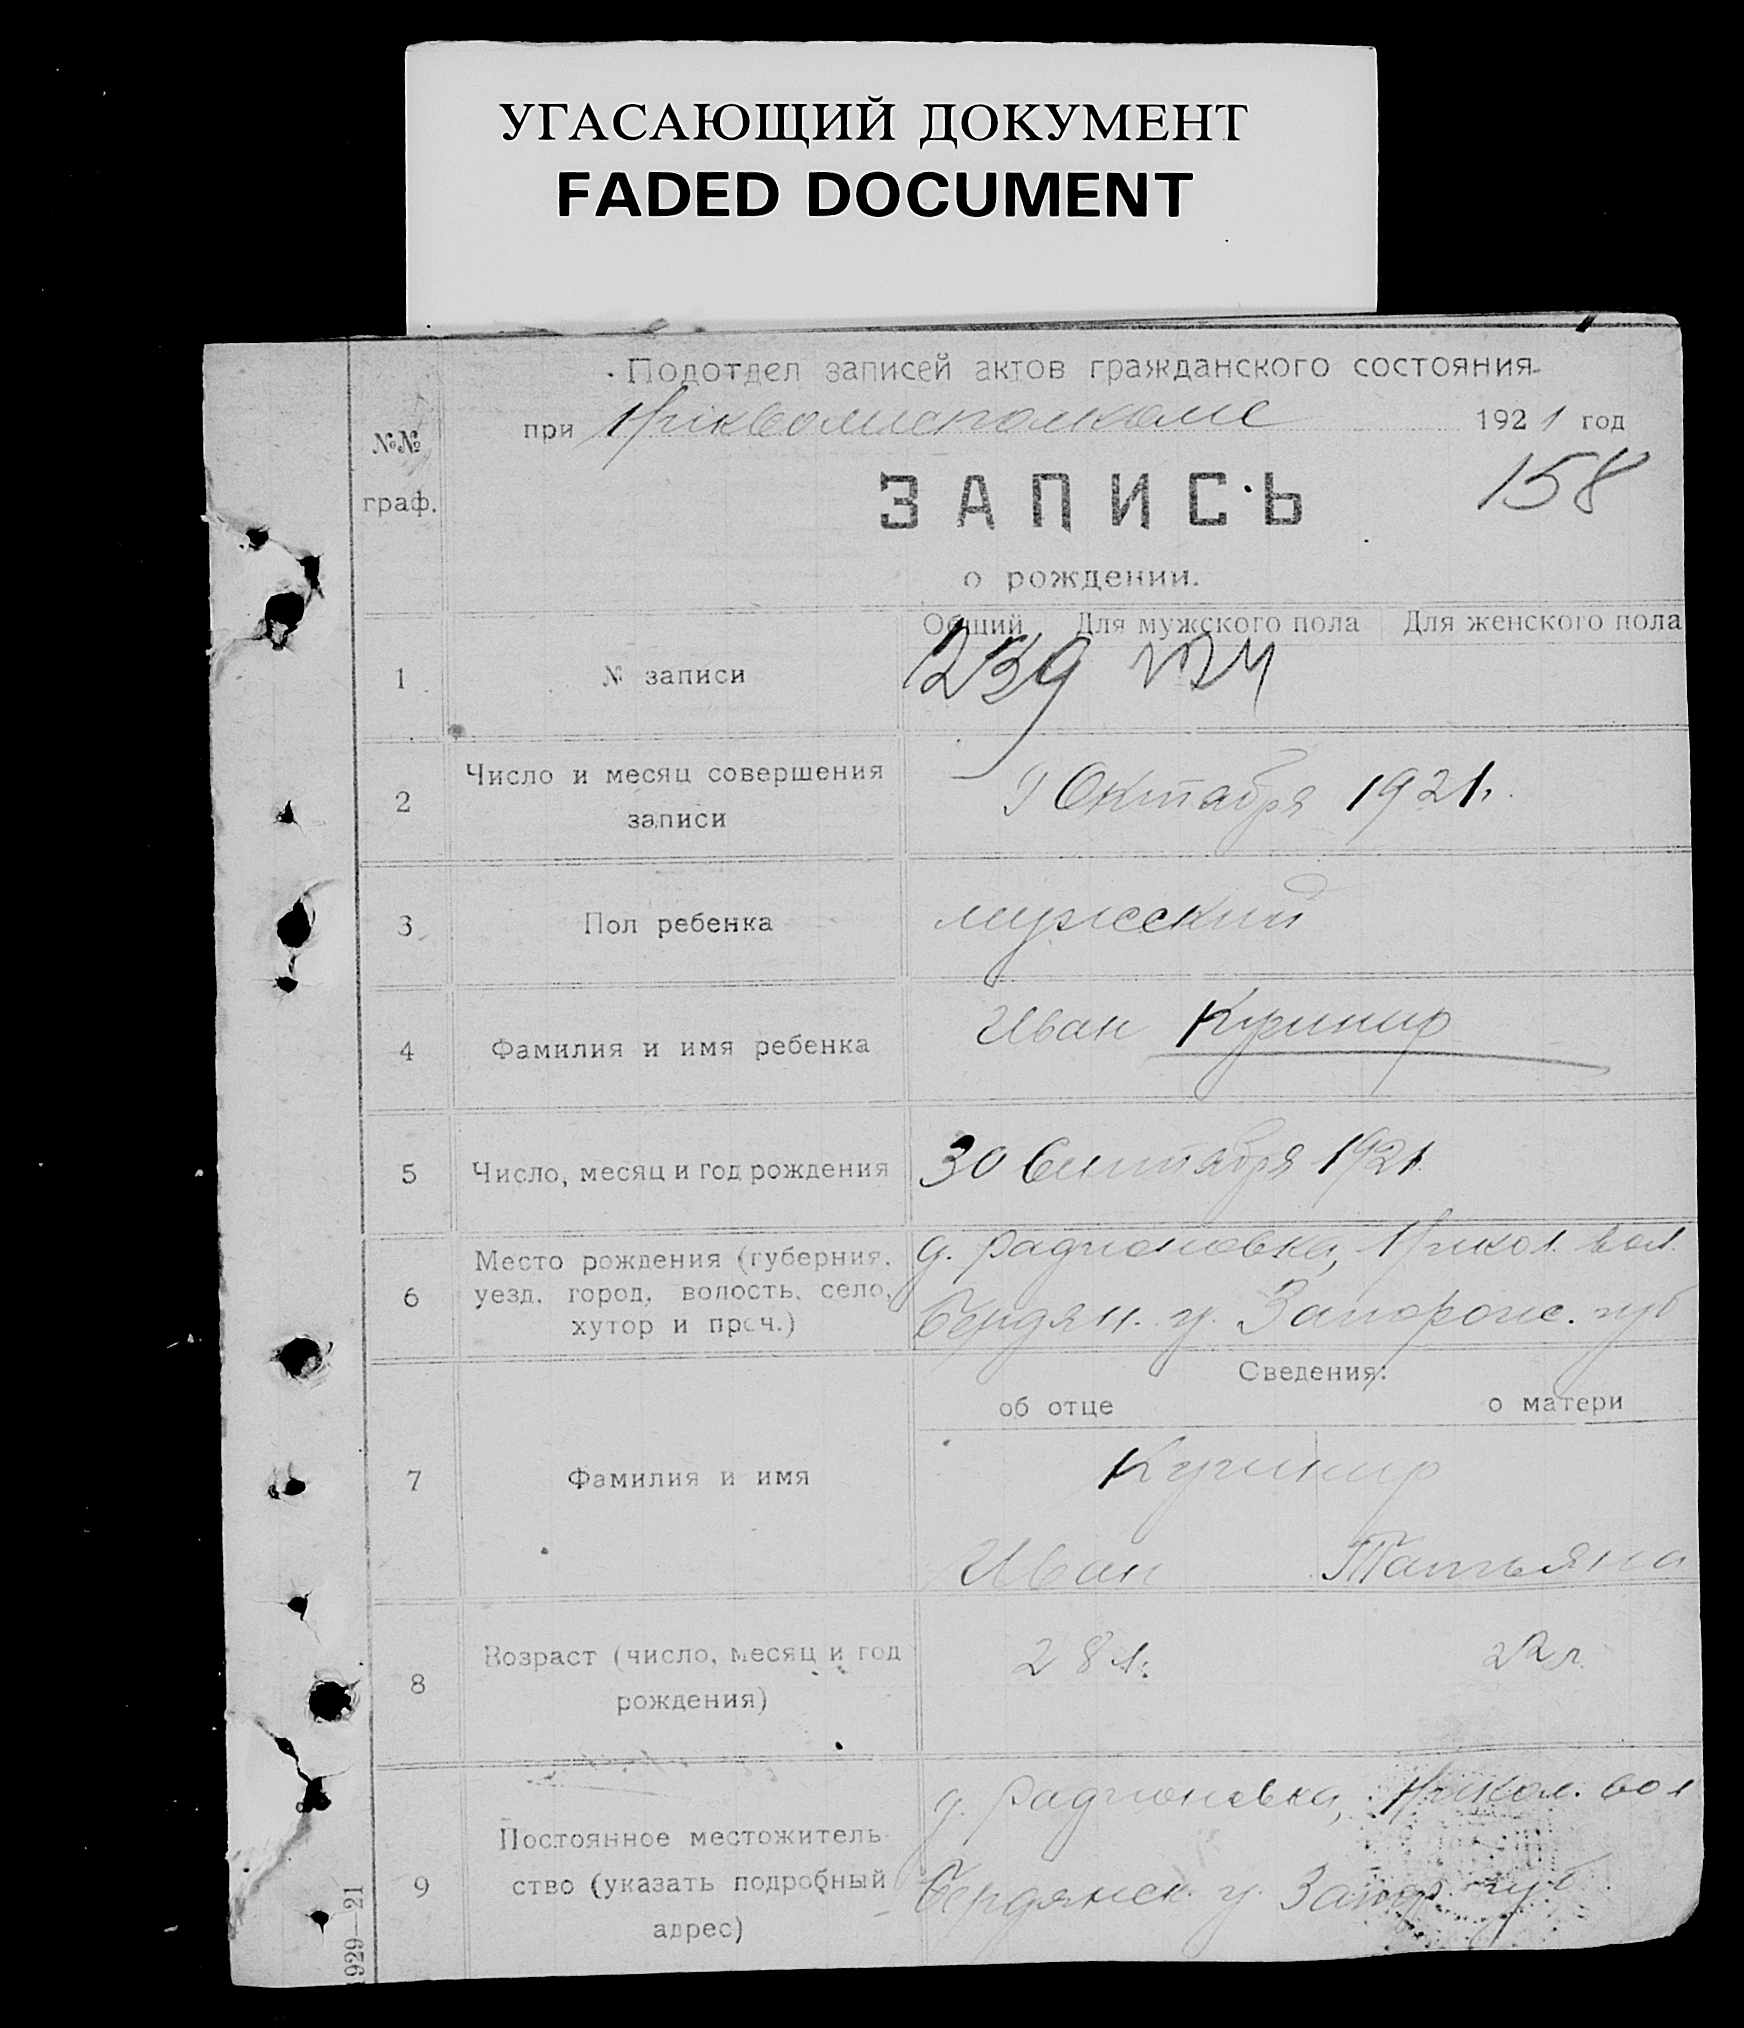 УГАСАЮЩИЙ ДОКУМЕНТ
FADED DOCUMENT
Подотдел записей актов гражданского состояния
при 1921 год
№№
граф.
158
ЗАПИСЬ
о рождении.
Общий Для мужского пола Для женского пола
1 № записи 239
2 Число и месяц совершения
записи
Октября 1921г.
3 Пол ребенка мужеский
4 Фамилия и имя ребенка Иван Кушнир
5 Число, месяц и год рождения 30 Сентября 1921
6 Место рождения (губерния,
уезд, город, волость, село,
хутор и проч.)
д. Радионовка, вол.
Бердян. у. Запорож. губ
Сведения:
об отце о матери
7 Фамилия и имя
Кушнир
Иван Татьяна
8 Возраст (число, месяц и год
рождения)
28 л. 22 л.
9 Постоянное местожитель
ство (указать подробный
адрес)
д. Радионовка, вол
Бердянск. у. Запор. губ.
929—21